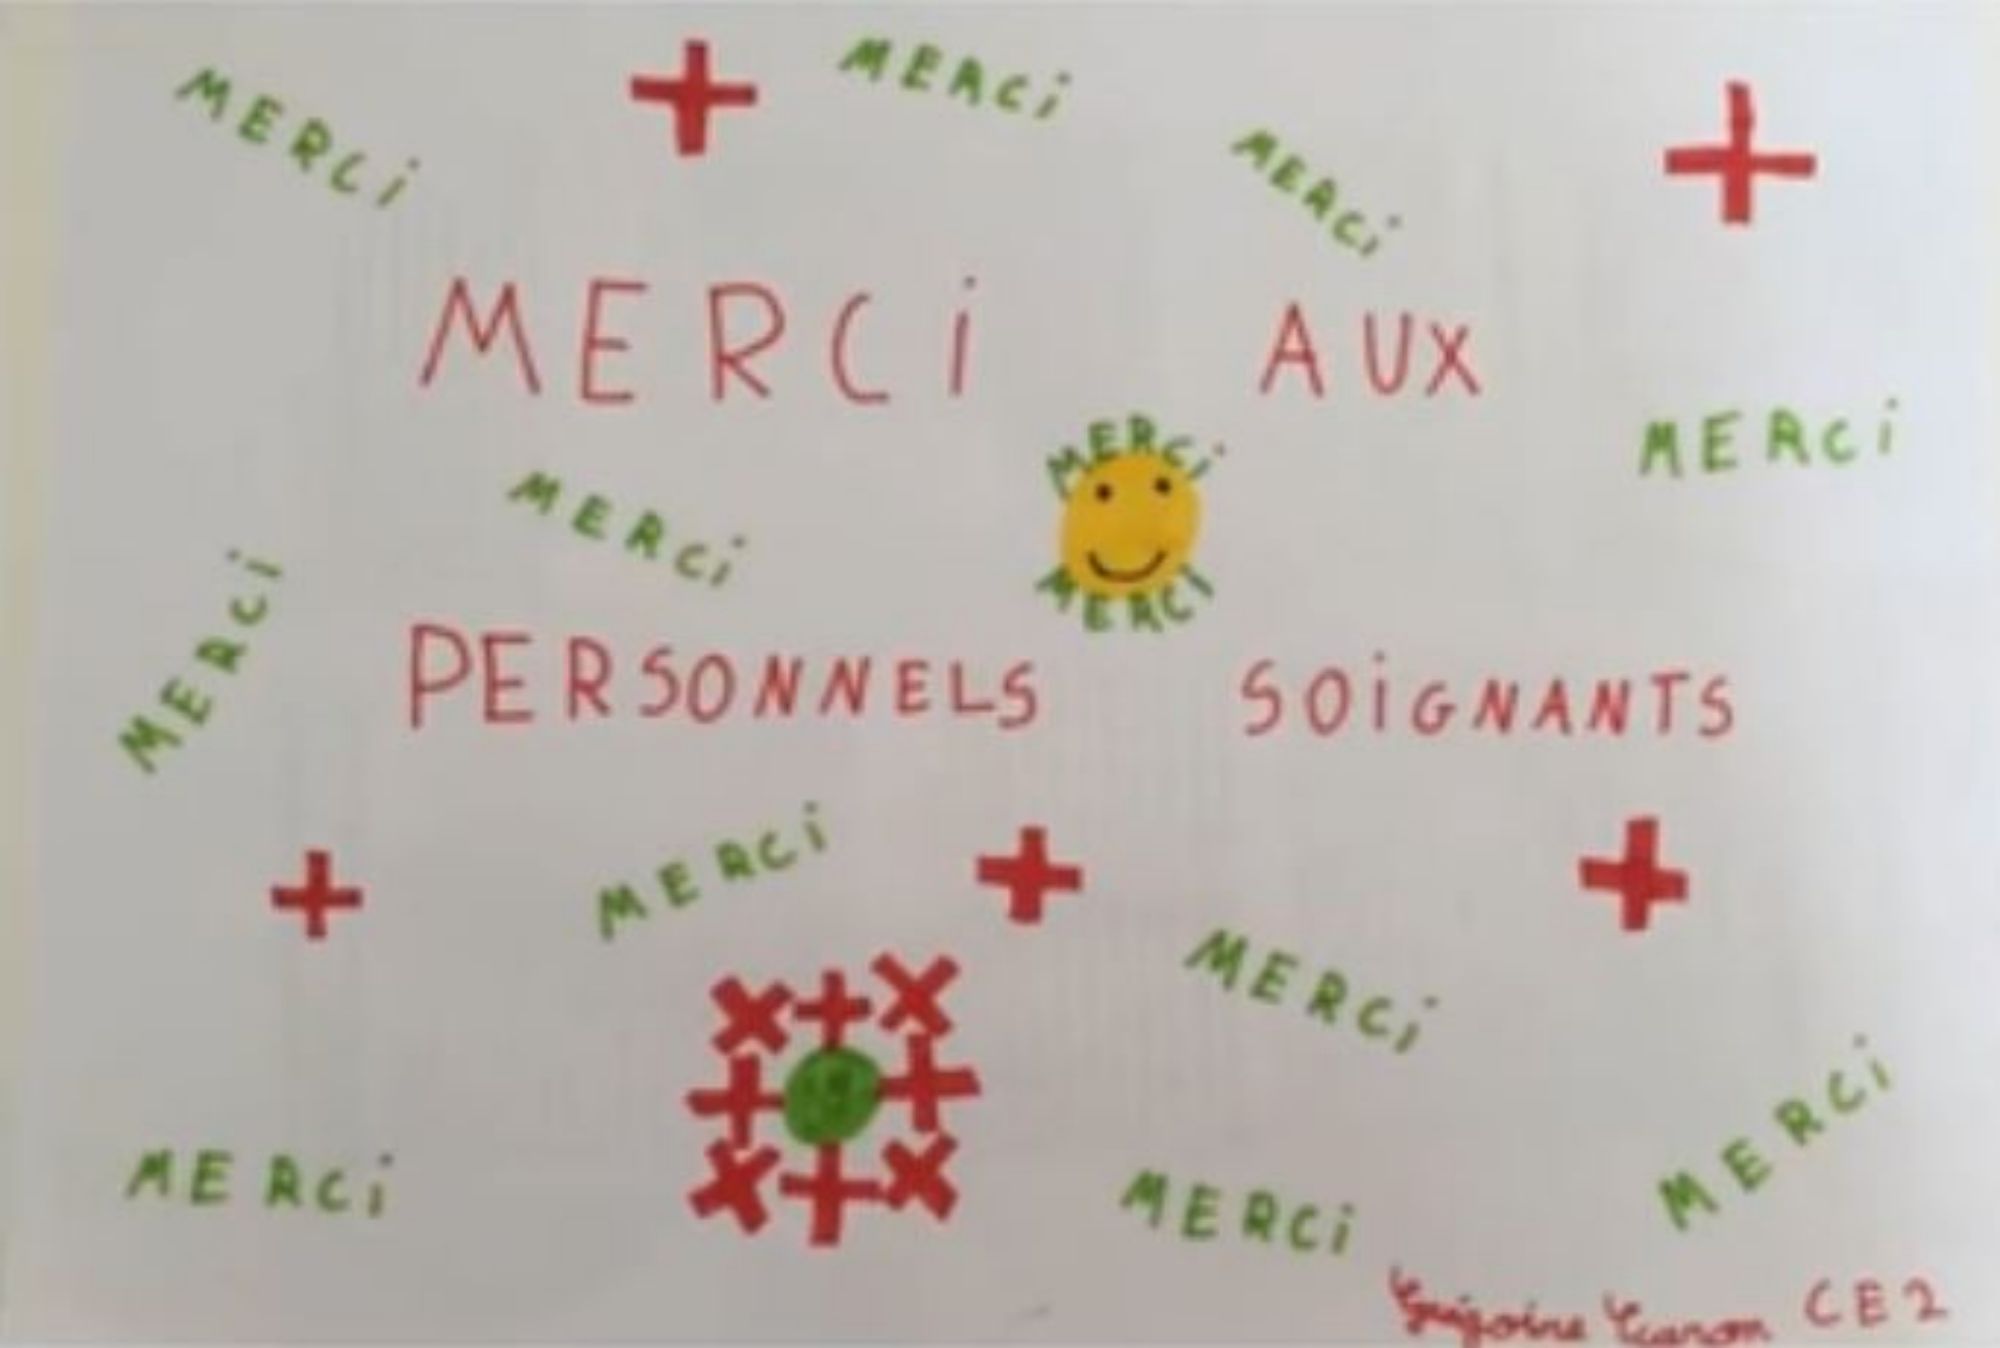 MERCi
MERCi
MERCi
MERCi AUX
MERCi
MERCi
MERCi
MERCi
MERCI
PERSONNELS SOiGNANTS
MERCi
MERCi
MERCi
MERCi
MERCi
MERCi
CE2